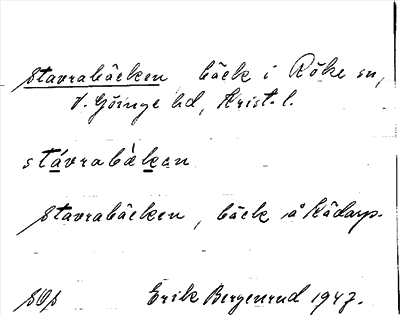 Stavrabäcken bäck i Röke sn,
V. Göinge hd, Krist. l.
stávrabàkan
Stavrabäcken, bäck å Kädarp.
Erik Bergenrud 1947.